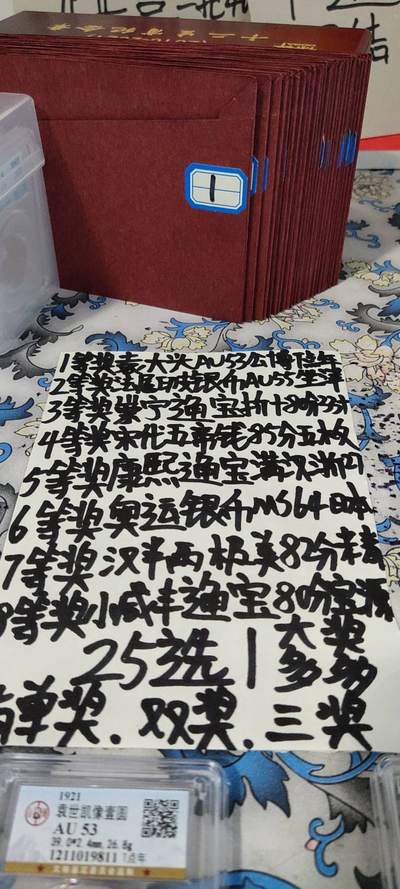 1
1等奖袁大头AU53公博
2等奖法属坊银币AU55坐洋
3等奖崇宁通宝折十80分33寸
4等奖宋代五帝钱85分五枚
5等奖康熙通宝满汉浙
6等奖奥运银币MS64日本
7等奖汉半两极美82分
等奖小咸丰通宝80分宝源
25选1大奖多多
单奖.双奖.三奖
1921
袁世凯像壹圆
AU 53
39.0*2.4mm,26.8g
1211019811 7点年